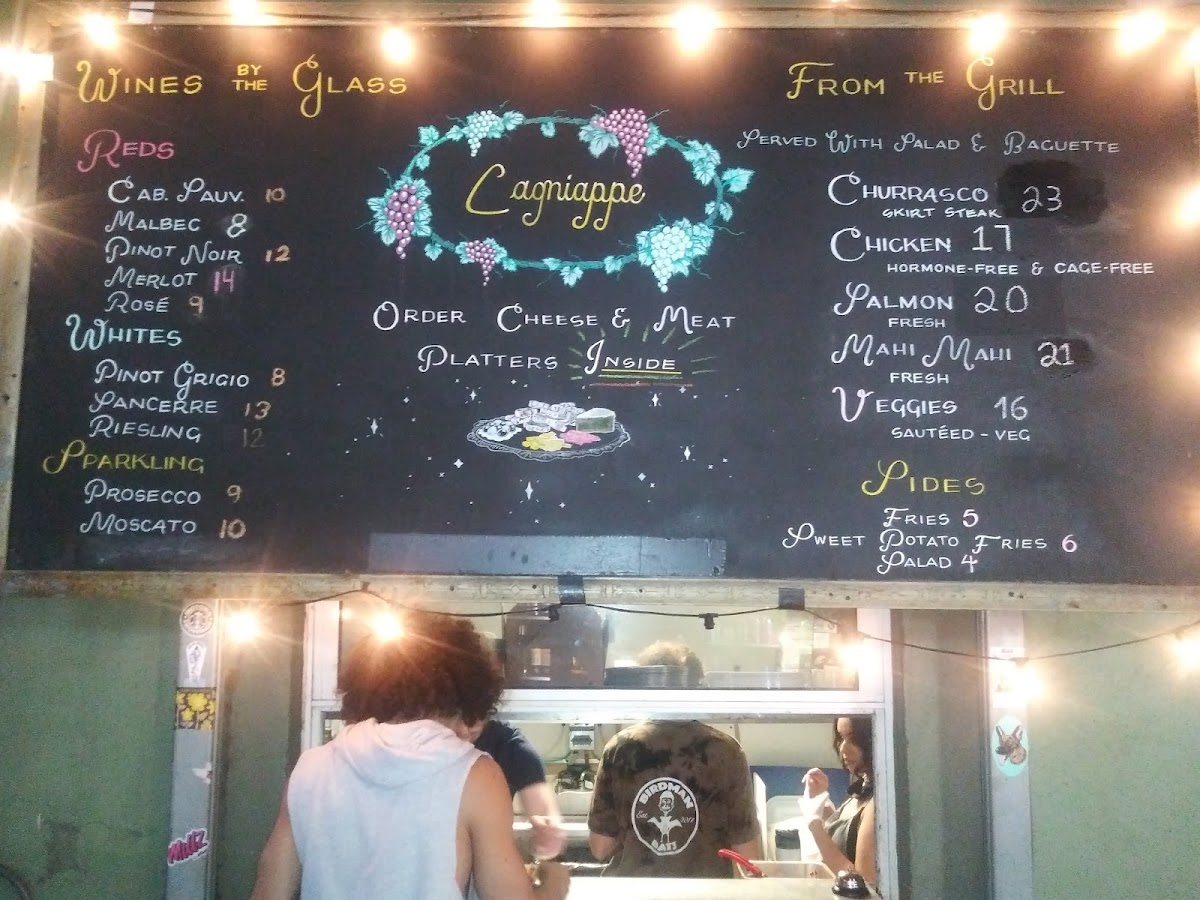 WINES BY THE GLASS
REDS
CAB. SAUV. 10
MALBEC 8
PINOT NOIR 12
MERLOT 14
ROSÉ 9
WHITES
PINOT GRIGIO 8
SANCERRE 13
RIESLING 12
SPARKLING
PROSECCO 9
MOSCATO 10
Lagniappe
ORDER CHEESE & MEAT
PLATTERS INSIDE
FROM THE GRILL
SERVED WITH SALAD & BAGUETTE
CHURRASCO 23
SKIRT STEAK
CHICKEN 17
HORMONE-FREE & CAGE-FREE
SALMON 20
FRESH
MAHI MAHI 21
FRESH
VEGGIES 16
SAUTÉED - VEG
SIDES
FRIES 5
SWEET POTATO FRIES 6
SALAD 4
BIRDMAN
BATS
Millz